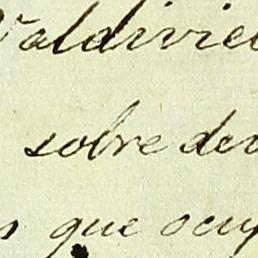 Valdivie
sobre de
que ocup